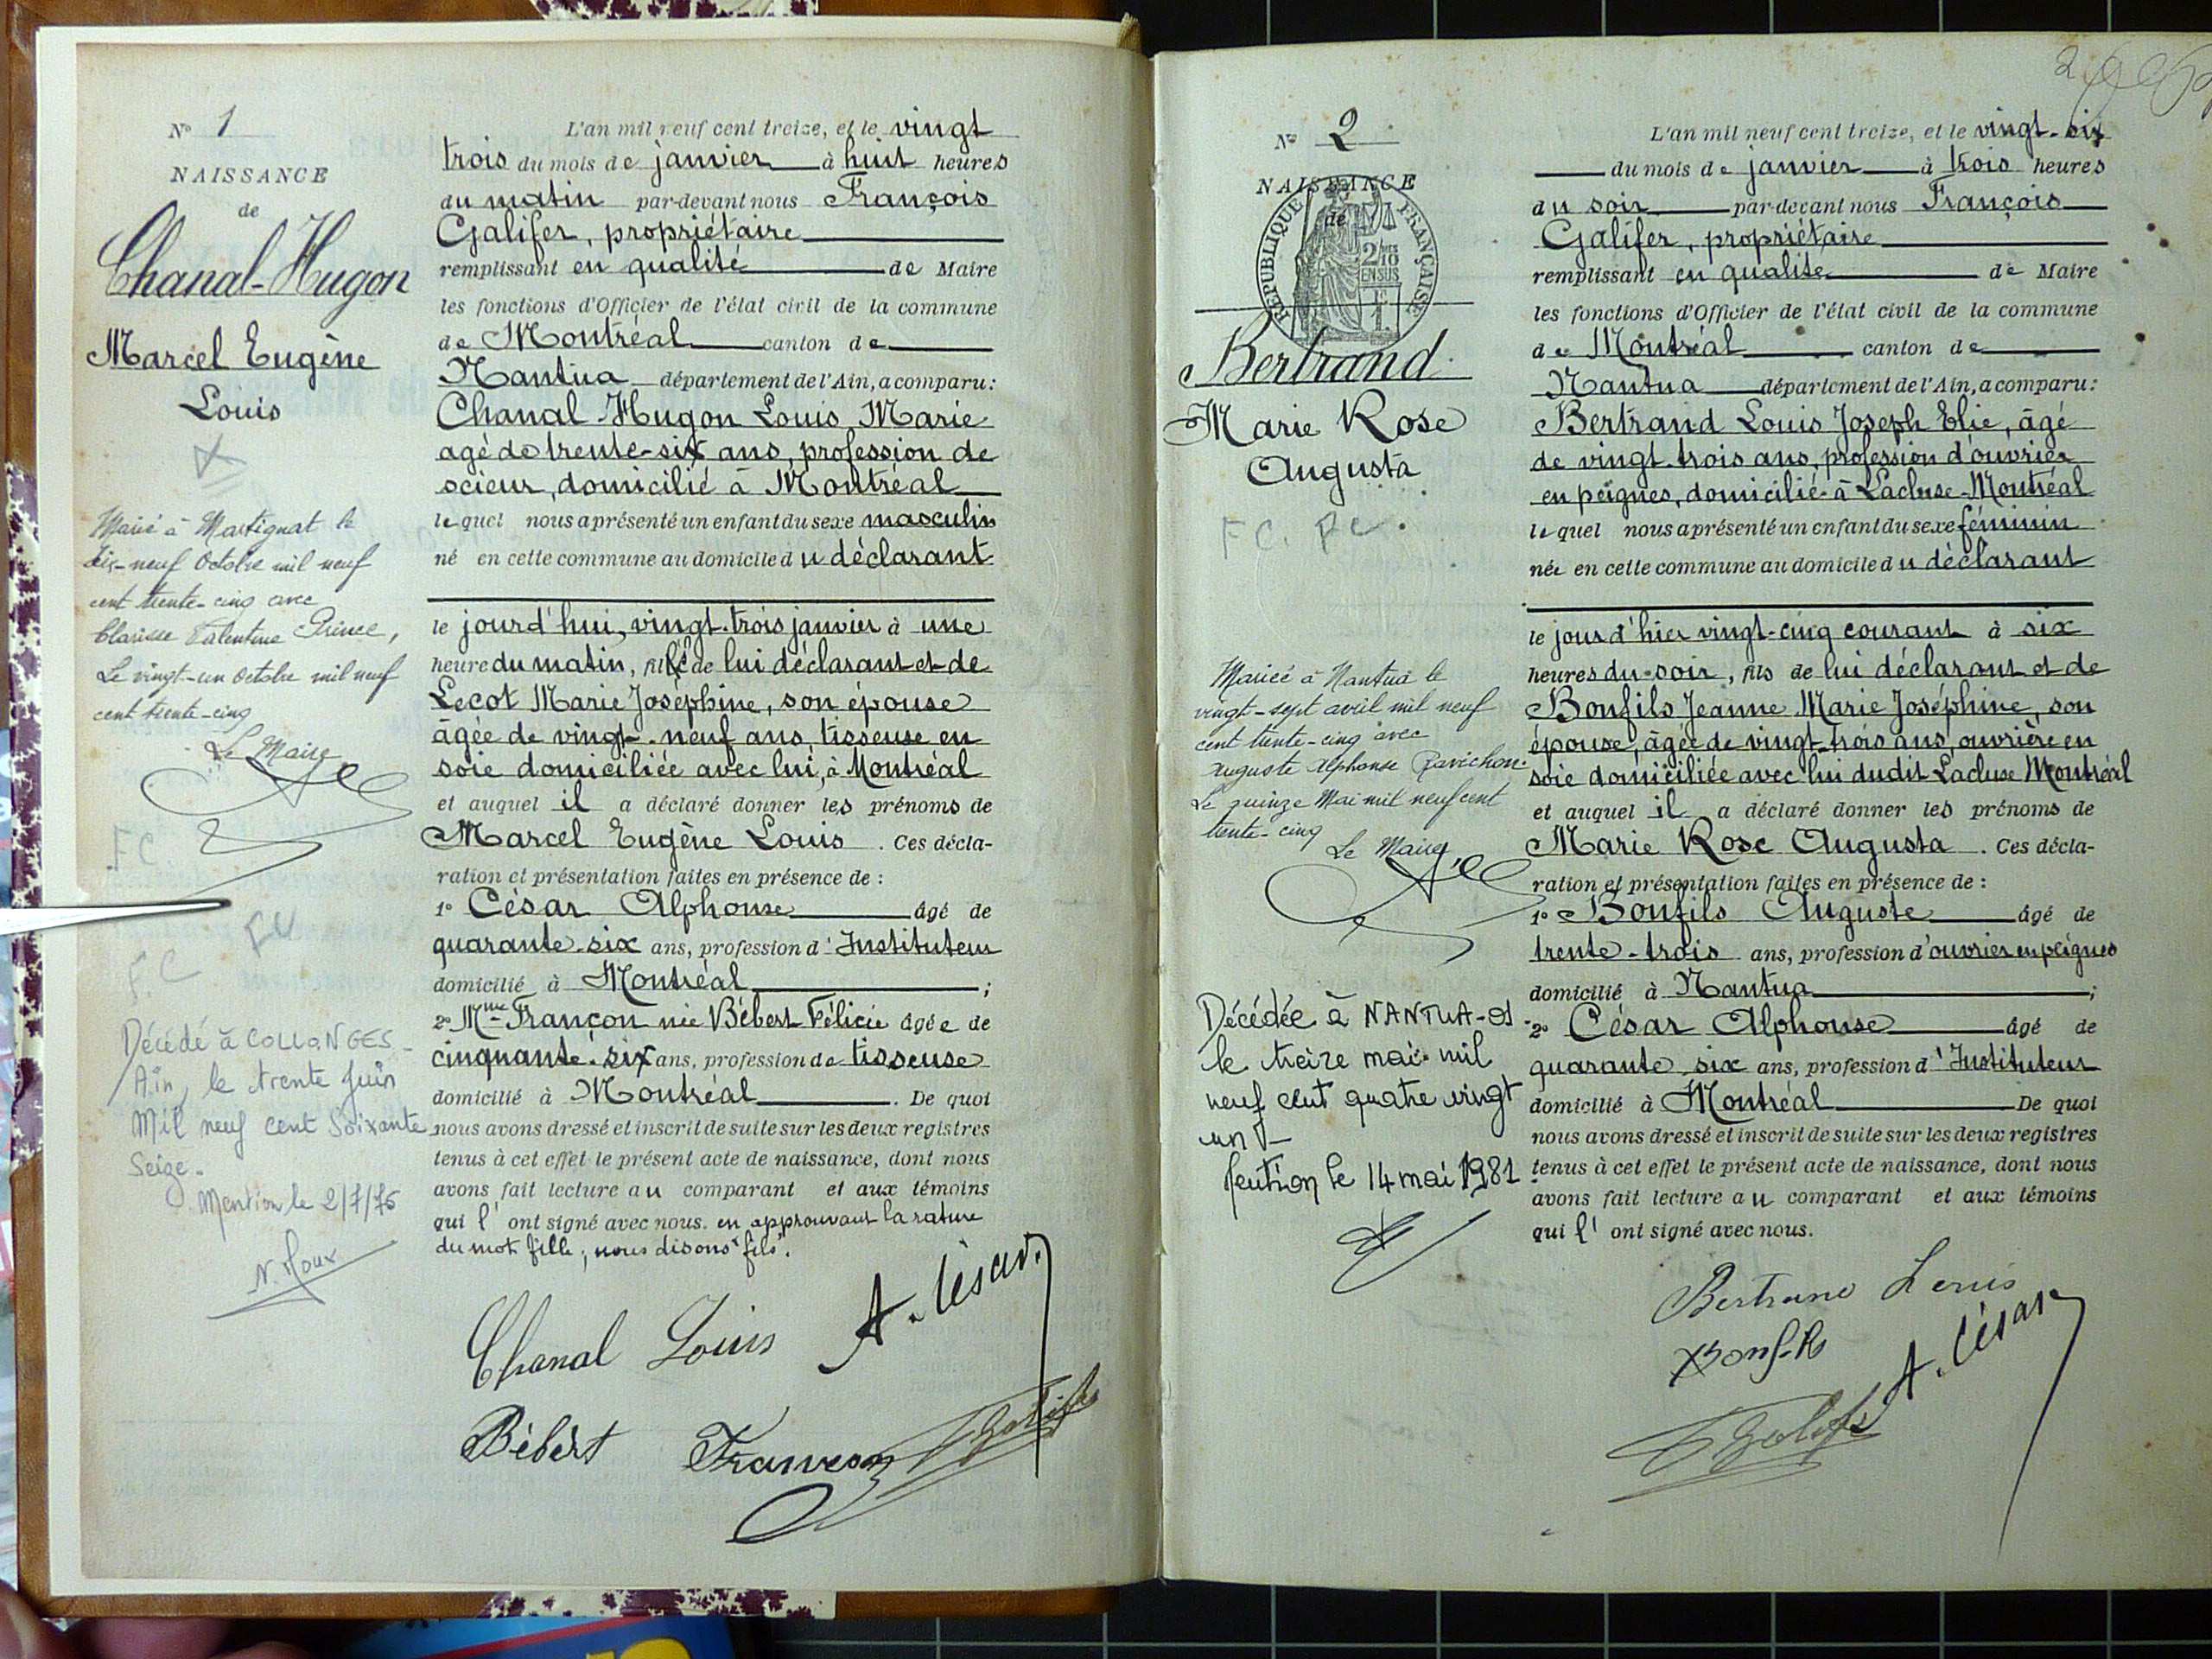 N° 1
NAISSANCE
de
Chanal-Hugon
Marcel Eugène
Louis
Marié à Martignat le
dix-neuf Octobre mil neuf
cent trente-cinq avec
Clarisse Valentine Prince,
Le vingt-un Octobre mil neuf
cent trente-cinq
Le Maire
FC
F.C
Décédé à COLLONGES-
Ain, le trente Juin
Mil neuf cent Soixante
Seize.
Mention le 2/7/76
N. Roux
L'an mil neuf cent treize, et le vingt
trois du mois de janvier à huit heures
du matin par-devant nous François
Galifer, propriétaire
remplissant en qualité de Maire
les fonctions d'Officier de l'état civil de la commune
de Montréal canton de
Nantua département de l'Ain, a comparu :
Chanal-Hugon Louis Marie
agé de trente-six ans, profession de
scieur, domicilié à Montréal
lequel nous a présenté un enfant du sexe masculin
né en cette commune au domicile du déclarant
le jourd'hui, vingt-trois janvier à une
heure du matin, fille de lui déclarant et de
Lecot Marie Joséphine, son épouse
âgée de vingt-neuf ans, tisseuse en
soie domiciliée avec lui, à Montréal
et auquel il a déclaré donner les prénoms de
Marcel Eugène Louis. Ces décla-
ration et présentation faites en présence de :
1° César Alphonse âgé de
quarante-six ans, profession d'Instituteur
domicilié à Montréal ;
2° Mme Françon née Bébert Félicie âgée de
cinquante-six ans, profession de tisseuse
domicilié à Montréal. De quoi
nous avons dressé et inscrit de suite sur les deux registres
tenus à cet effet le présent acte de naissance, dont nous
avons fait lecture au comparant et aux témoins
qui l'ont signé avec nous. en approuvant la rature
du mot fille, nous disons "fils".
Chanal Louis A. César
Bébert Françon Galifer
2
N° 2
NAISSANCE
de
RÉPUBLIQUE FRANÇAISE
2/10
EN SUS
Bertrand
Marie Rose
Augusta
FC.
Mariée à Nantua le
vingt-sept avril mil neuf
cent trente-cinq avec
Auguste Alphonse Ravichon.
Le quinze Mai mil neuf cent
trente-cinq
Le Maire
Décédée à NANTUA-01
le treize mai mil
neuf cent quatre vingt
un
Mention le 14 mai 1981
L'an mil neuf cent treize, et le vingt-six
du mois de janvier à trois heures
du soir par-devant nous François
Galifer, propriétaire
remplissant en qualité de Maire
les fonctions d'Officier de l'état civil de la commune
de Montréal canton de
Nantua département de l'Ain, a comparu :
Bertrand Louis Joseph Elie, âgé
de vingt-trois ans, profession d'ouvrier
en peignes, domicilié à Lacluse-Montréal
lequel nous a présenté un enfant du sexe féminin
née en cette commune au domicile du déclarant
le jour d'hier vingt-cinq courant à six
heures du soir, fils de lui déclarant et de
Bonfils Jeanne Marie Joséphine, son
épouse, âgée de vingt-trois ans, ouvrière en
soie domiciliée avec lui dudit Lacluse Montréal
et auquel il a déclaré donner les prénoms de
Marie Rose Augusta. Ces décla-
ration et présentation faites en présence de :
1° Bonfils Auguste âgé de
trente-trois ans, profession d'ouvrier en peignes
domicilié à Nantua ;
2° César Alphonse âgé de
quarante six ans, profession d'Instituteur
domicilié à Montréal De quoi
nous avons dressé et inscrit de suite sur les deux registres
tenus à cet effet le présent acte de naissance, dont nous
avons fait lecture au comparant et aux témoins
qui l'ont signé avec nous.
Bertrand Louis
Bonfils A. César
Galifer